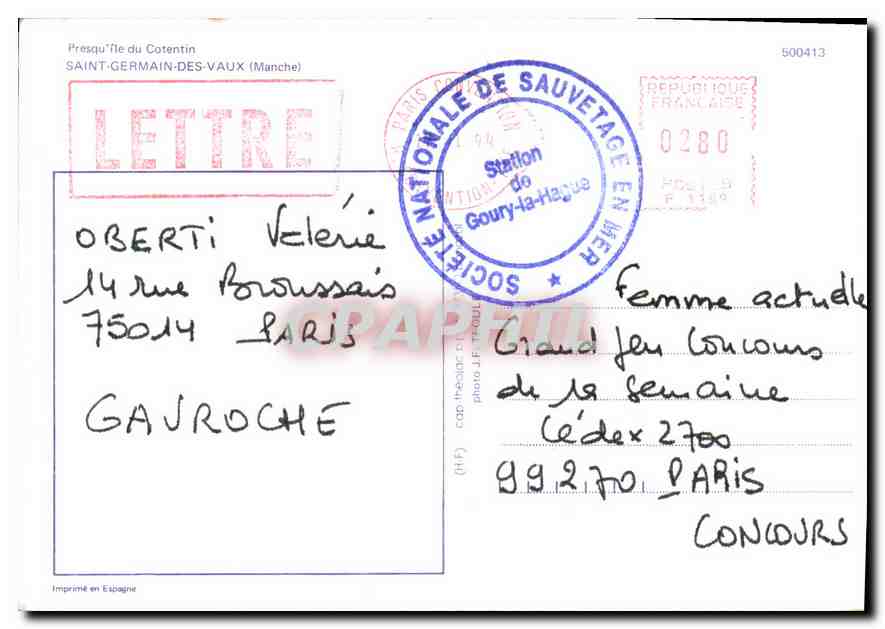 Presqu'île du Cotentin
SAINT-GERMAIN-DES-VAUX (Manche)
500413
LETTRE
PARIS
94
SOCIÉTÉ NATIONALE DE SAUVETAGE EN MER
Station
de
Goury-la-Hague
REPUBLIQUE
FRANCAISE
0280
POSTES
OBERTI Valérie
14 rue Broussais
75014 PARIS
GAVROCHE
CPAPHIL
Femme actuelle
Grand Jeu Concours
de la Semaine
Cédex 2700
99270 PARIS
CONCOURS
(H.F)
cap-théojac
photo
Imprimé en Espagne